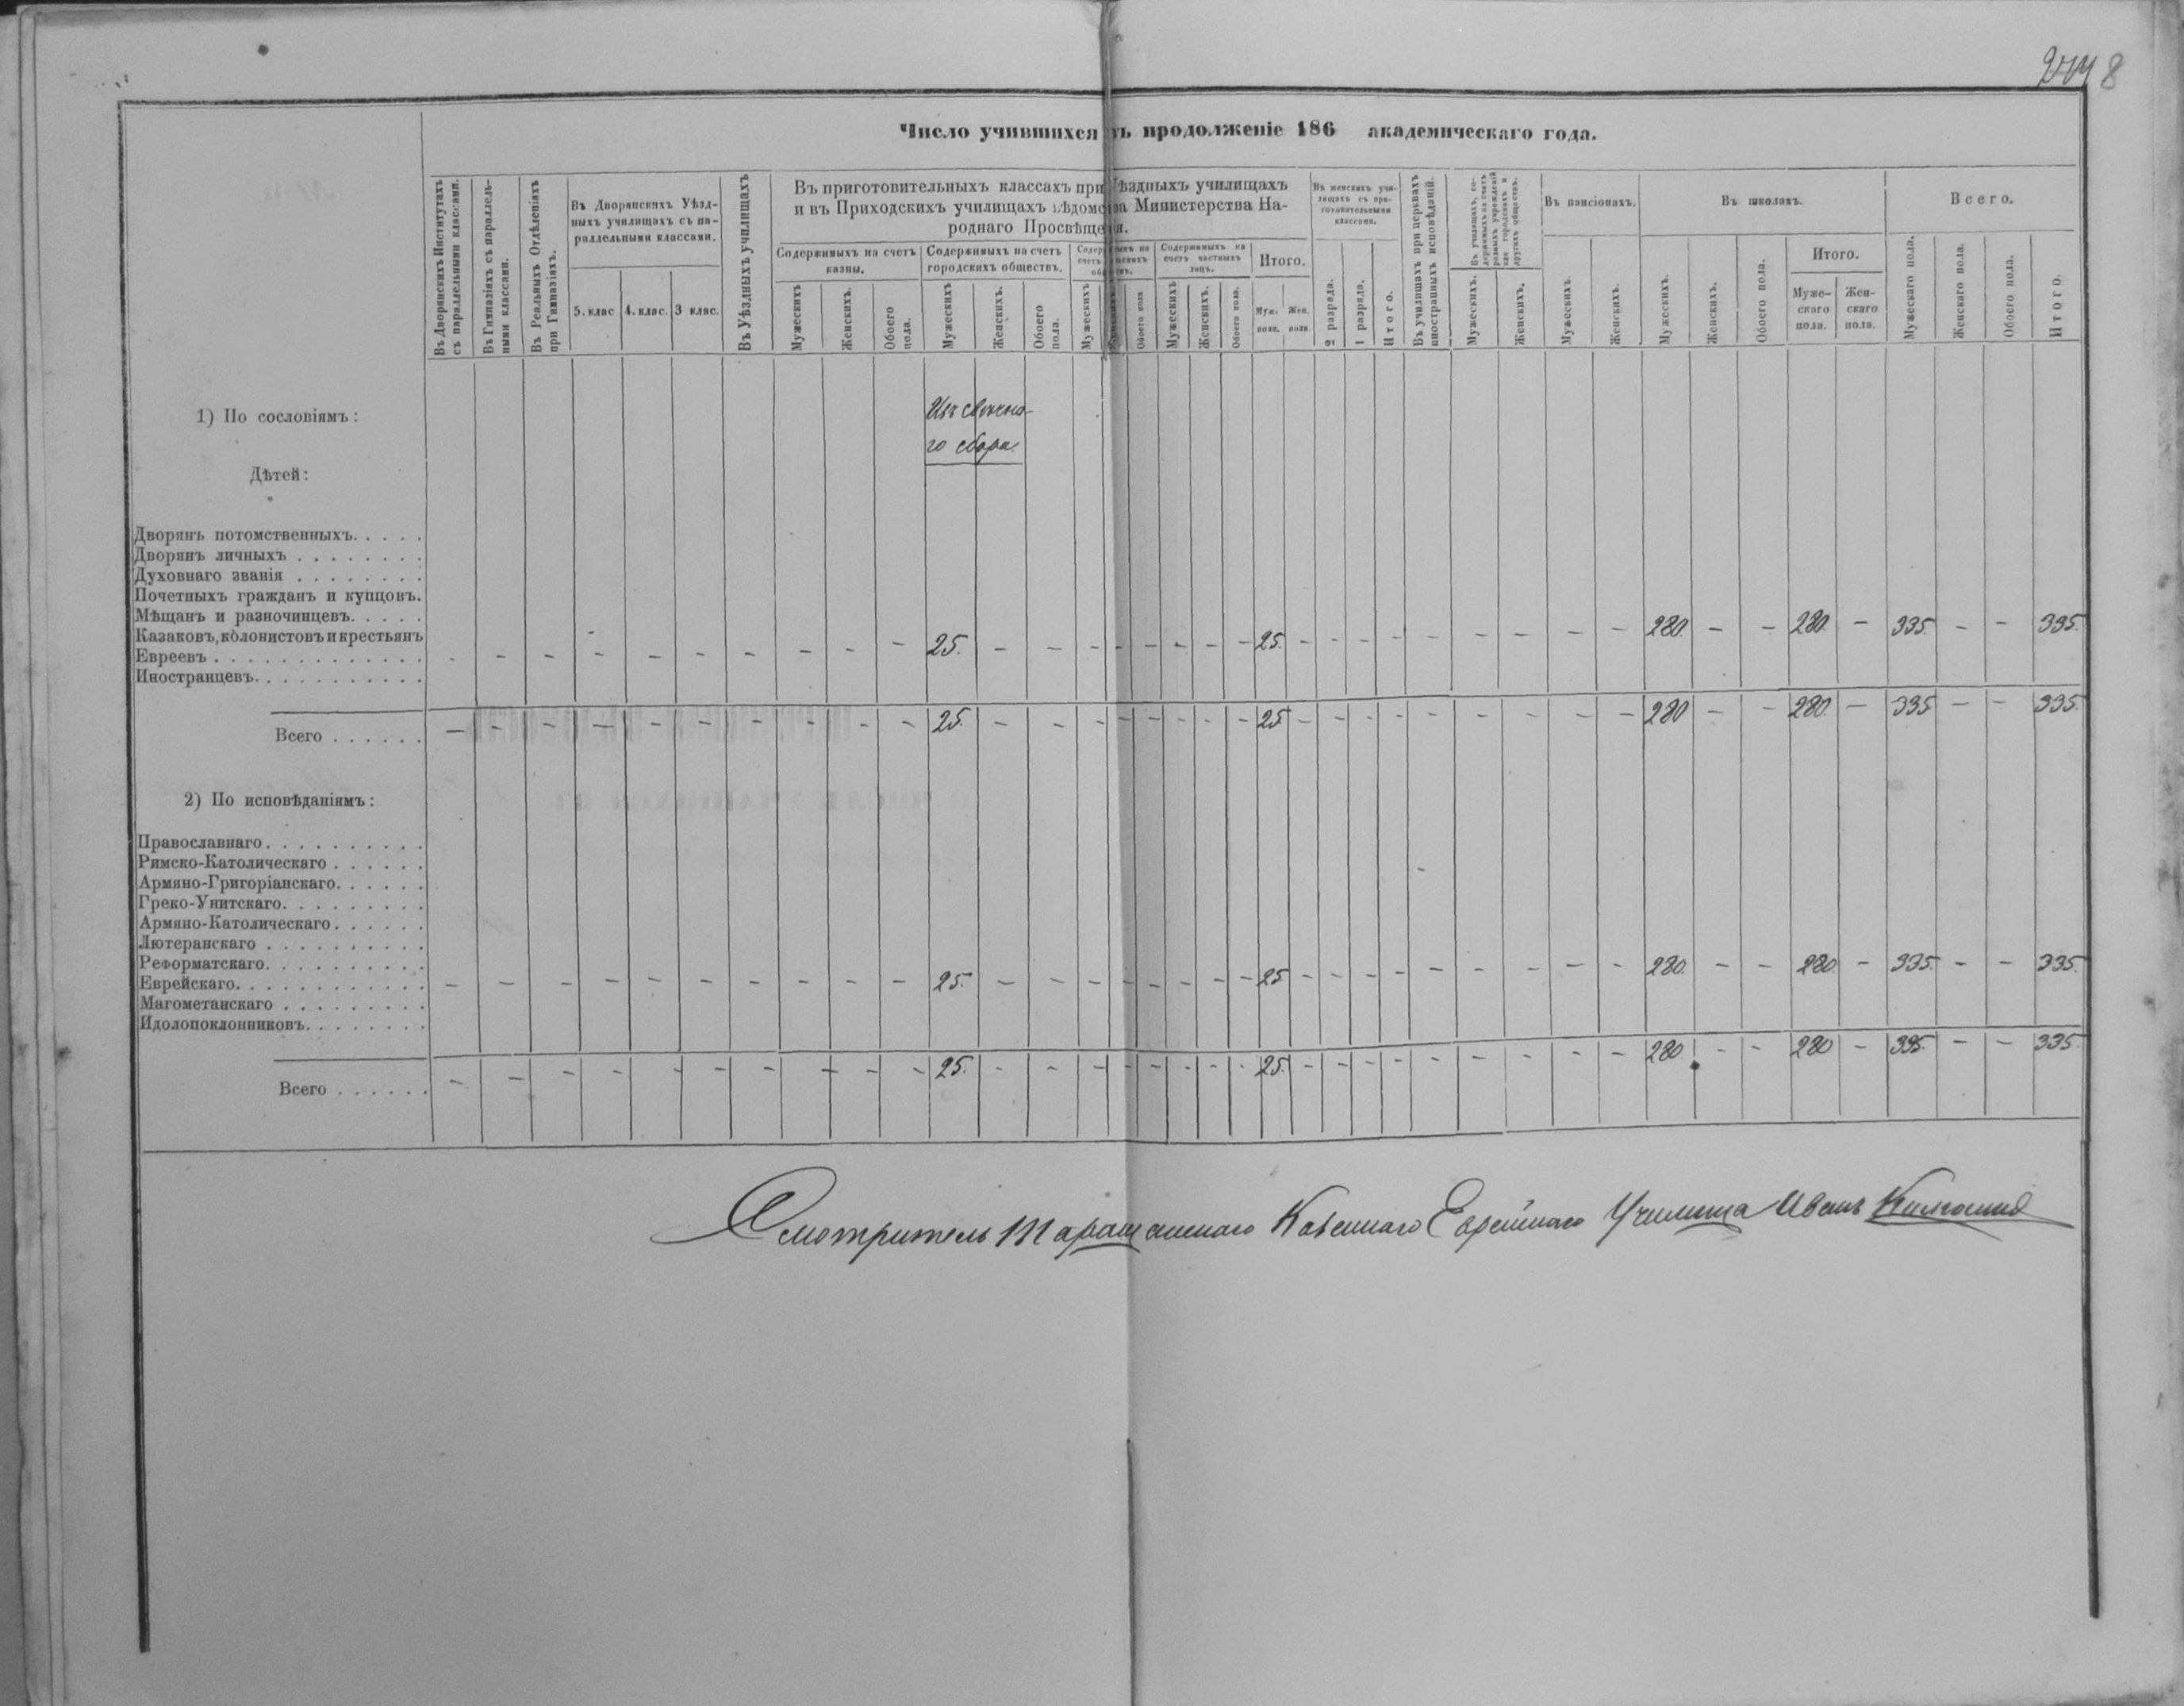 8
Число учившихся въ продолженіе 186 академическаго года.
Въ Дворянскихъ Институтахъ съ параллельными классами.
Въ Гимназіяхъ съ параллель-
ными классами.
Въ Реальныхъ Отдѣленіяхъ
при Гимназіяхъ.
Въ Дворянскихъ Уѣзд-
ныхъ училищахъ съ па-
раллельными классами.
5. клас 4. клас. 3 клас.
Въ Уѣздныхъ училищахъ
Въ приготовительныхъ классахъ при Уѣздныхъ училищахъ
и въ Приходскихъ училищахъ вѣдомства Министерства На-
роднаго Просвѣщенія.
Содержимыхъ на счетъ
казны.
Мужескихъ Женскихъ. Обоего пола.
Содержимыхъ на счетъ
городскихъ обществъ.
Мужескихъ Женскихъ. Обоего пола.
Мужескихъ Обоего пола
Содержимыхъ на
счетъ частныхъ
лицъ.
Мужескихъ Женскихъ. Обоего пола.
Итого.
Муж. пола. Жен. пола
Въ женскихъ учи-
лищахъ съ при-
готовительными
классами.
2 разряда. 1 разряда. Итого.
Въ училищахъ при церквахъ
иностранныхъ исповѣданій.
Въ училищахъ, со-
держимыхъ на счетъ
разныхъ учрежденій
или городскихъ и
другихъ обществъ.
Мужескихъ. Женскихъ.
Въ пансіонахъ.
Мужескихъ Женскихъ.
Въ школахъ.
Мужескихъ. Женскихъ. Обоего пола.
Итого.
Муже-
скаго
пола.
Жен-
скаго
пола.
Всего.
Мужескаго пола. Женскаго пола. Обоего пола. Итого.
1) По сословіямъ:
Изъ свѣчна-
го сбора
Дѣтей:
Дворянъ потомственныхъ. . . . .
Дворянъ личныхъ . . . . . . . .
Духовнаго званія . . . . . . . .
Почетныхъ гражданъ и купцовъ.
Мѣщанъ и разночинцевъ. . . . .
Казаковъ, колонистовъ и крестьянъ
Евреевъ . . . . . . . . . . . . . - - - - - - - - - - 25. - - - - - - - - - 25. - - - - - - - - - - 280 - - 280 - 335. - - 335.
Иностранцевъ. . . . . . . . . . .
Всего . . . . . . - - - - - - - - - - 25. - - - - - - - - - 25 - - - - - - - - - - 280 - - 280 - 335 - - 335.
2) По исповѣданіямъ:
Православнаго. . . . . . . . . .
Римско-Католическаго . . . . . .
Армяно-Григоріанскаго. . . . . .
Греко-Унитскаго. . . . . . . . .
Армяно-Католическаго. . . . . .
Лютеранскаго . . . . . . . . . .
Реформатскаго. . . . . . . . . .
Еврейскаго. . . . . . . . . . . . - - - - - - - - - - 25. - - - - - - - - - 25 - - - - - - - - - - 280. - - 280 - 335. - - 335.
Магометанскаго . . . . . . . . .
Идолопоклонниковъ. . . . . . . .
Всего . . . . . . - - - - - - - - - - 25. - - - - - - - - - 25. - - - - - - - - - - 280 - - 280 - 335. - - 335.
Смотритель Таращанскаго Казеннаго Еврейскаго Училища Иванъ